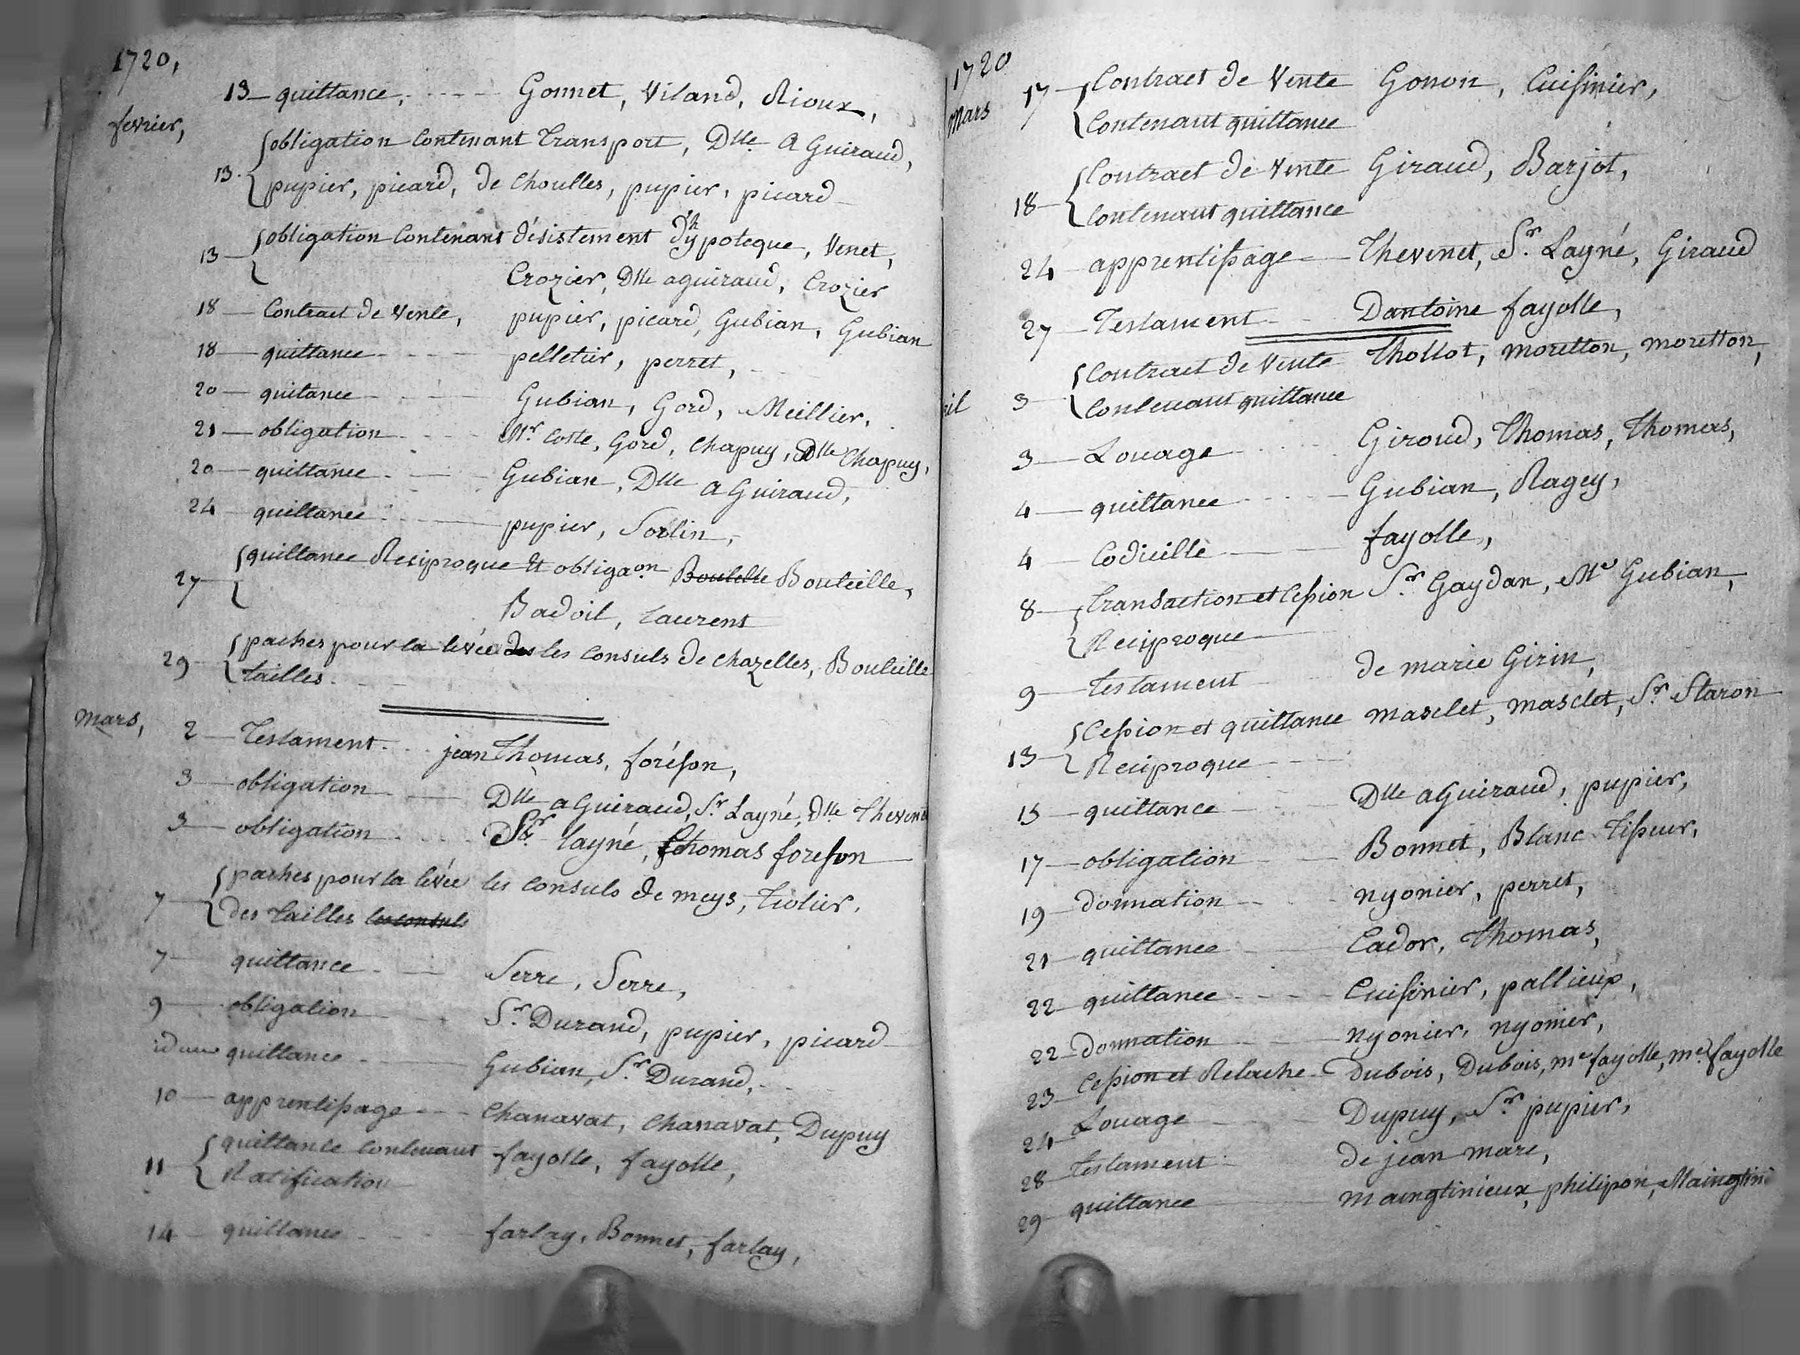 1720,
fevrier,
13 — quittance, - - - - Gonnet, Viland, Rioux,
13. { obligation Contenant Transport, Dlle. A Guiraud,
pupier, picard, de Choulles, pupier, picard
13 — { obligation Contenant désistement d'hypoteque, Venet,
Crozier, Dlle aguiraud, Crozier
18 — Contract de Vente, pupier, picard, Gubian, Gubian
18 — quittance - - - - pelletier, perret,
20 — quitance - - - - Gubian, Gord, Meillier,
21 — obligation - - - - Mr. Coste, Gord, Chapuy, Dlle Chapuy,
20 — quittance - - - Gubian, Dlle A Guiraud,
24 — quittance - - - pupier, Sorlin,
27 — { quittance Resiproque et obligaon. Boutelle Bouteille,
Badoil, laurent
29 — { paches pour la levée des les Consuls de chazelles, Bouteille
tailles. - -
mars,
2 — Testament - - jean Thomas, foréson,
3 — obligation - - Dlle a Guiraud, Sr. Layné, dlle Theven
3 — obligation - - - Sr. layné, Thomas foreson
7 — { paches pour la levée les Consuls de meys, Tiolier,
des Tailles les consuls
7 — quittance - - Serre, Serre,
9 — obligation - - Sr. Durand, pupier, picard
idem quittance - - Gubian, Sr. Durand,
10 — apprentissage - - Chanavat, Chanavat, Dupuy
11 — { quittance Contenant fayolle, fayolle,
Ratification
14 — quittance - - - farlay, Bonnet, farlay,
1720
Mars
17 — { Contract de Vente Gonon, Cuisinier,
Contenant quittance
18 — { Contract de Vente Giraud, Barjot,
Contenant quittance
24 — apprentissage — Thevenet, Sr. Layné, Giraud
27 — Testament - - Dantoine fayolle,
ril
3 — { Contract de Vente Thollot, moretton, moretton,
Contenant quittance
3 — Louage - - - Giroud, Thomas, Thomas,
4 — quittance - - - Gubian, Ragey,
4 — Codicille — — fayolle,
8 — { Transaction et Cession Sr. Gaydan, Me Gubian,
Reciproque
9 — testament - - de marie Girin,
13 — { Cession et quittance masclet, masclet, Sr. Staron
Reciproque - - -
15 — quittance - - Dlle aGuiraud, pupier,
17 — obligation - - Bonnet, Blanc Tisseur,
19 — donnation - - nyonier, perret,
21 — quittance - - Cador, Thomas,
22 — quittance - - - Cuisinier, pallieux,
22 — donnation - - nyonier, nyonier,
23 — Cession et Relache - Dubois, Dubois, me fayolle, me. fayolle
24 — Louage - - Dupuy, Sr. pupier,
28 — testament - - de jean marc,
29 — quittance - - maingtinieux, philipon, Maingtini